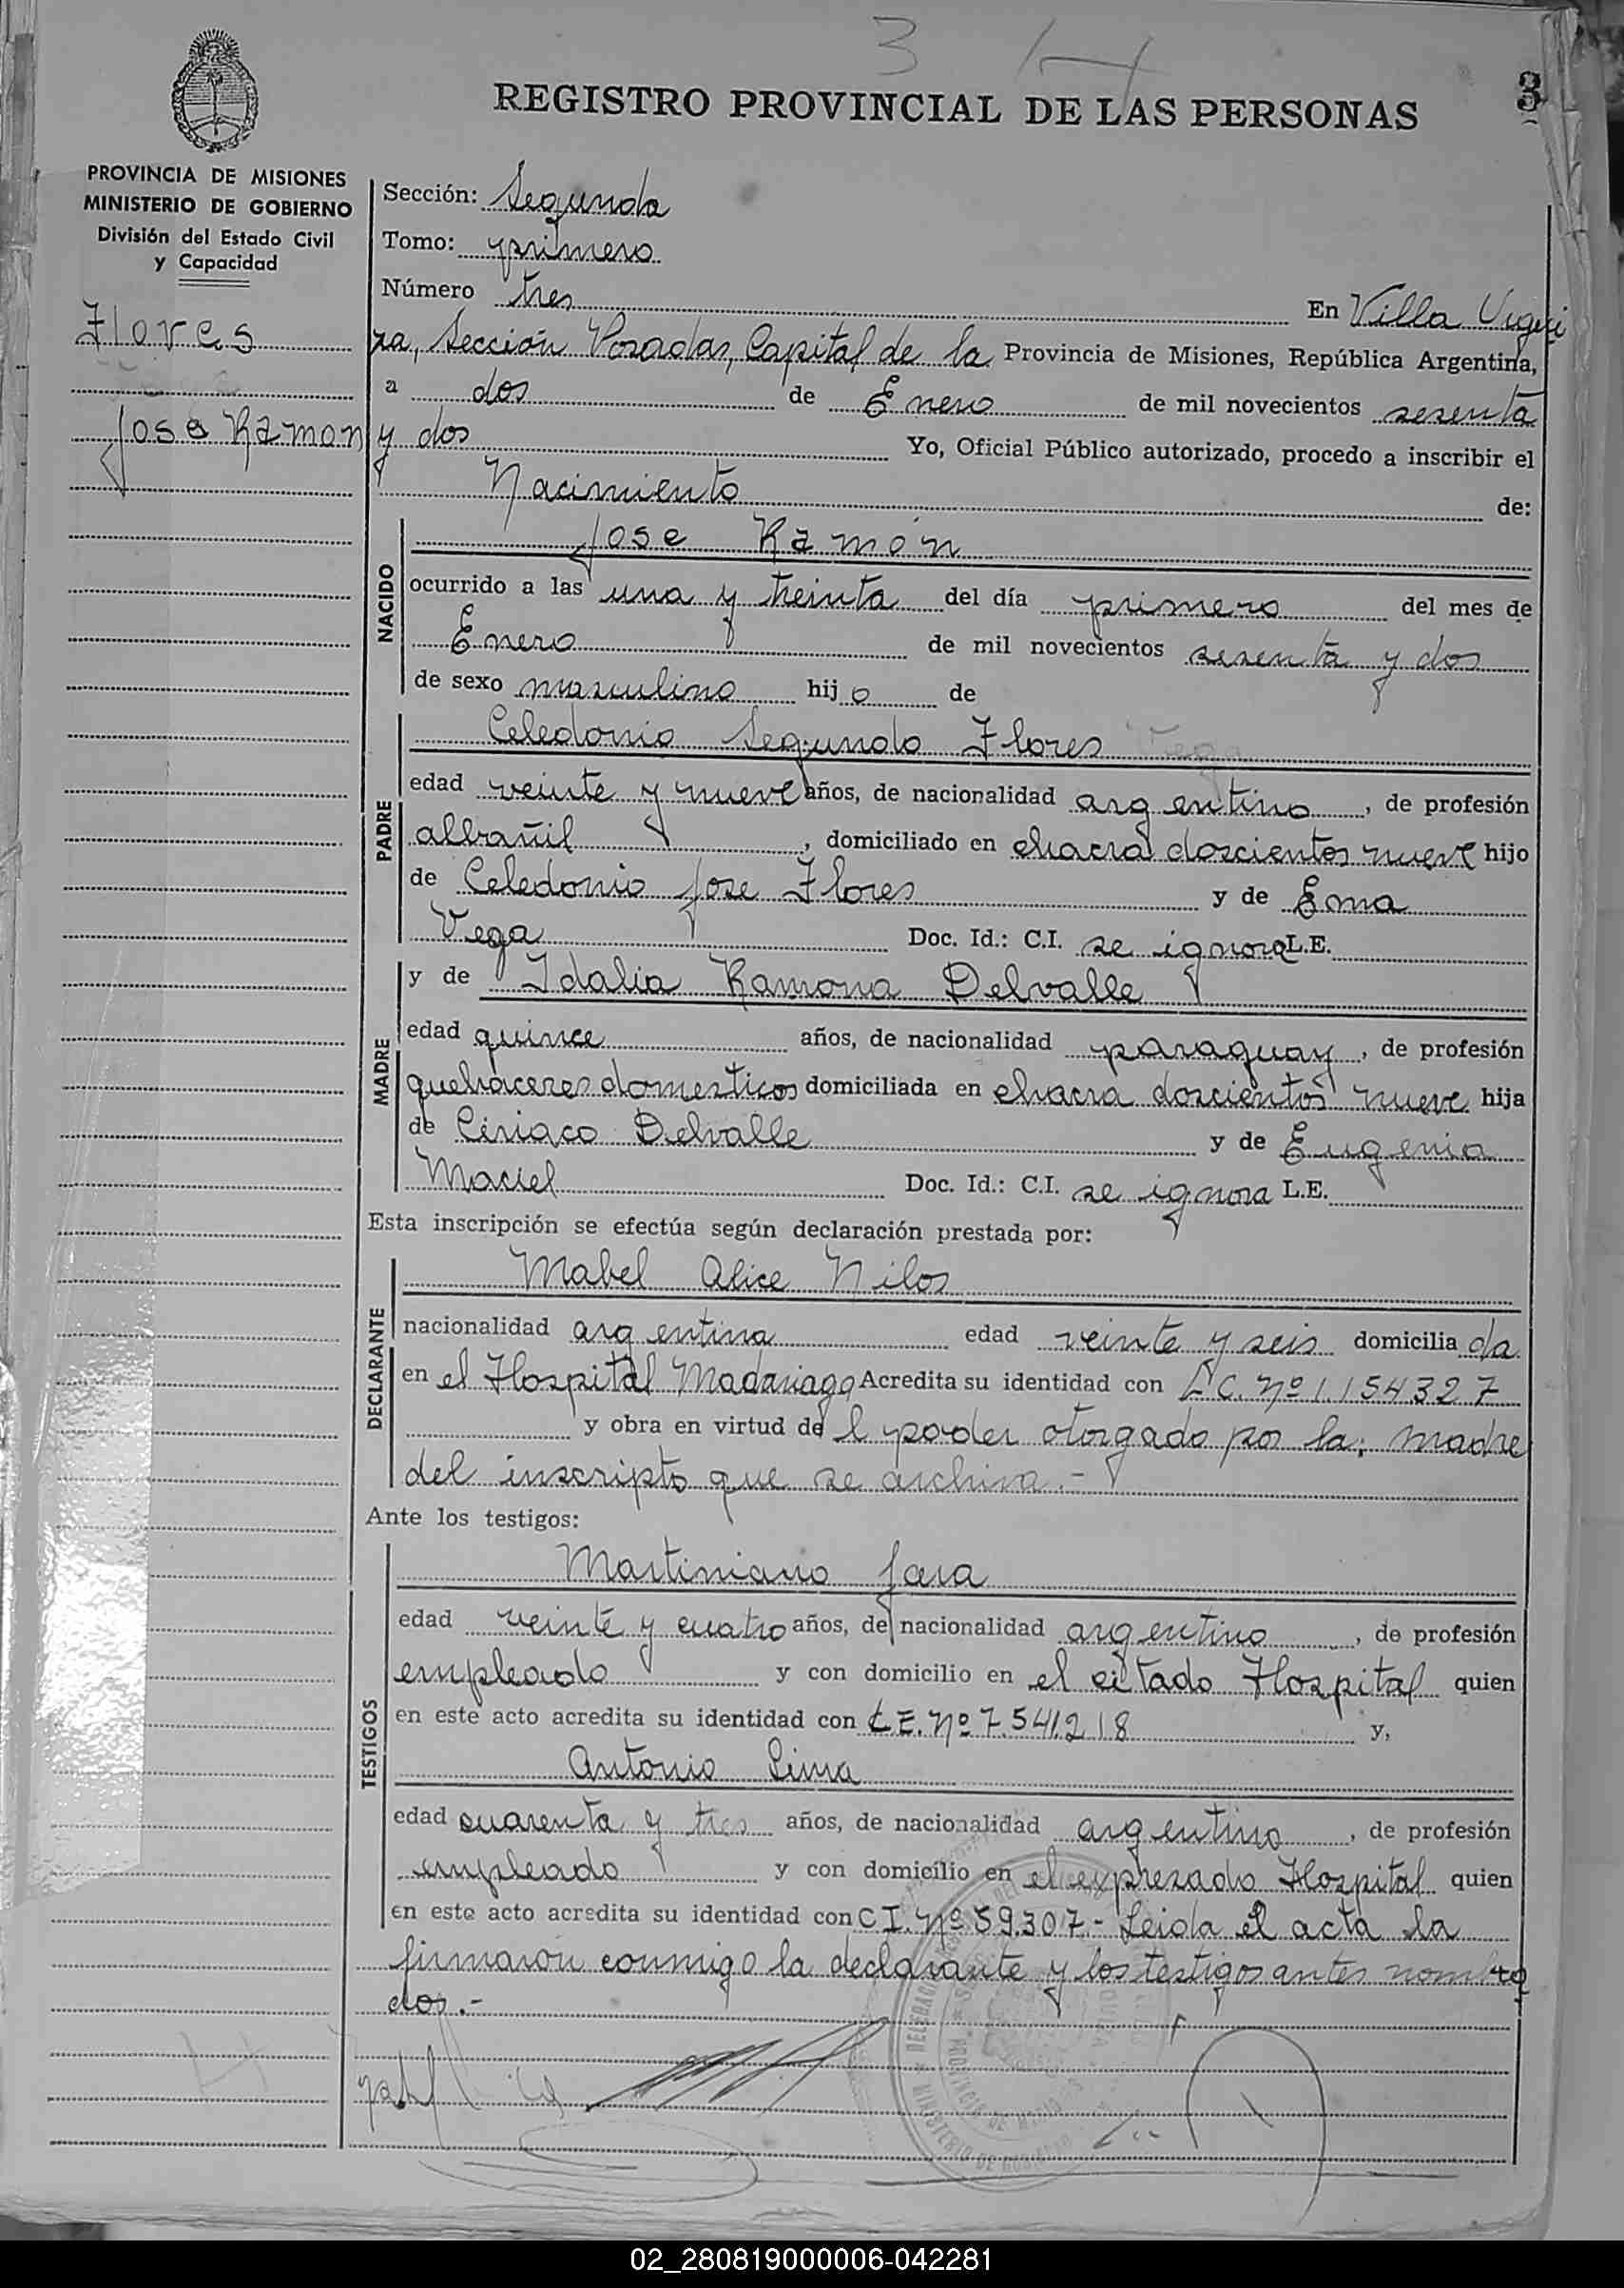 3
REGISTRO PROVINCIAL DE LAS PERSONAS
3
PROVINCIA DE MISIONES
MINISTERIO DE GOBIERNO
División del Estado Civil
y Capacidad
Flores
Jose Ramon
Sección: Segunda
Tomo: primero
Número tres En Villa Urqui
za, Sección Posadas, Capital de la Provincia de Misiones, República Argentina,
a dos de Enero de mil novecientos sesenta
y dos Yo, Oficial Público autorizado, procedo a inscribir el
Nacimiento de:
NACIDO
Jose Ramón
ocurrido a las una y treinta del día primero del mes de
Enero de mil novecientos sesenta y dos
de sexo masculino hijo de
PADRE
Celedonio Segundo Flores
edad veinte y nueve años, de nacionalidad argentino, de profesión
albañil, domiciliado en chacra doscientos nueve hijo
de Celedonio Jose Flores y de Ema
Vega Doc. Id.: C.I. se ignora L.E.
MADRE
y de Idalia Ramona Delvalle
edad quince años, de nacionalidad paraguay, de profesión
quehaceres domesticos domiciliada en chacra doscientos nueve hija
de Ciriaco Delvalle y de Eugenia
Maciel Doc. Id.: C.I. se ignora L.E.
Esta inscripción se efectúa según declaración prestada por:
DECLARANTE
Mabel Alice Nilos
nacionalidad argentina edad veinte y seis domiciliada
en el Hospital Madariaga Acredita su identidad con L.C. Nº 1.154.327
y obra en virtud del poder otorgado por la; madre
del inscripto que se archiva.-
Ante los testigos:
TESTIGOS
Martiniano Jara
edad veinte y cuatro años, de nacionalidad argentino, de profesión
empleado y con domicilio en el citado Hospital quien
en este acto acredita su identidad con L.E. Nº 7.541.218 y,
Antonio Lima
edad cuarenta y tres años, de nacionalidad argentino, de profesión
empleado y con domicilio en el expresado Hospital quien
en este acto acredita su identidad con C.I. Nº 59.307.- Leida el acta la
firmaron conmigo la declarante y los testigos antes nombra
dos.-
02_280819000006-042281